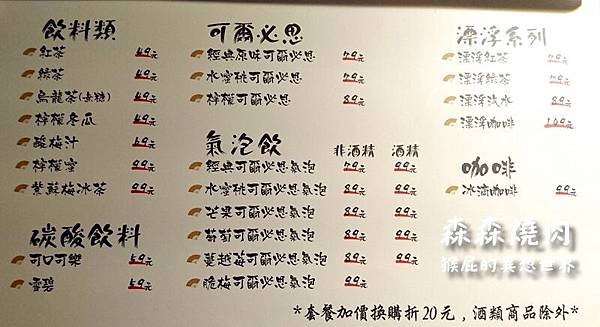 飲料類
紅茶 49元
綠茶 49元
烏龍茶(無糖) 49元
檸檬冬瓜 69元
酸梅汁 69元
檸檬蜜 99元
紫蘇梅冰茶 99元
碳酸飲料
可口可樂 59元
雪碧 59元
可爾必思
經典原味可爾必思 79元
水蜜桃可爾必思 79元
檸檬可爾必思 89元
氣泡飲 非酒精 酒精
經典可爾必思氣泡 79元 99元
水蜜桃可爾必思氣泡 89元 99元
芒果可爾必思氣泡 89元 99元
葡萄可爾必思氣泡 89元 99元
蔓越莓可爾必思氣泡 89元 99元
脆梅可爾必思氣泡 99元
漂浮系列
漂浮紅茶 79元
漂浮綠茶 79元
漂浮汽水 89元
漂浮咖啡 109元
咖啡
冰滴咖啡 99元
森森燒肉
猴屁的異想世界
*套餐加價換購折20元，酒類商品除外*